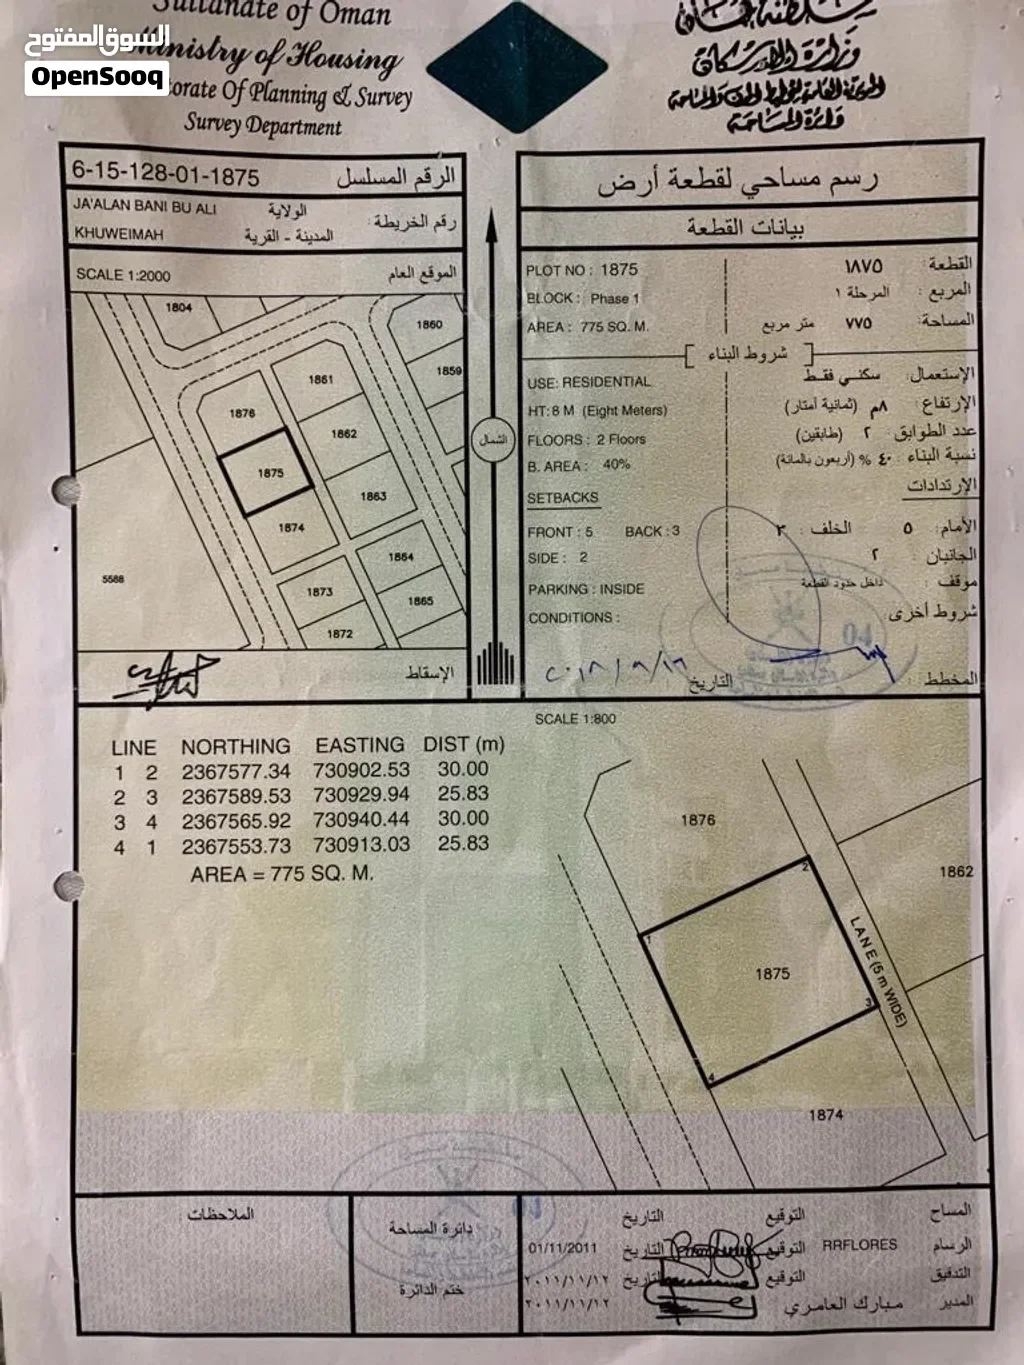 السوق المفتوح
OpenSooq
Sultanate of Oman
Ministry of Housing
Of Planning & Survey
Survey Department
سلطنة عمان
وزارة الإسكان
دائرة المساحة
6-15-128-01-1875 الرقم المسلسل
JA'ALAN BANI BU ALI الولاية
رقم الخريطة :
KHUWEIMAH المدينة - القرية
SCALE 1:2000 الموقع العام
1804
1860
1861
1859
1876
1862
1875
1863
1874
1864
5588
1873
1865
1872
الشمال
الإسقاط
رسم مساحي لقطعة أرض
بيانات القطعة
PLOT NO : 1875 القطعة : ١٨٧٥
BLOCK : Phase 1 المربع : المرحلة ١
AREA : 775 SQ. M. المساحة: ٧٧٥ متر مربع
شروط البناء
USE: RESIDENTIAL الإستعمال: سكني فقط
HT: 8 M (Eight Meters) الإرتفاع : ٨م (ثمانية أمتار)
FLOORS : 2 Floors عدد الطوابق : ٢ (طابقين)
B. AREA : 40% نسبة البناء : ٤٠ % (أربعون بالمائة)
SETBACKS الإرتدادات
FRONT : 5 BACK : 3 الأمام: ٥ الخلف : ٣
SIDE : 2 الجانبان : ٢
PARKING : INSIDE موقف : داخل حدود القطعة
CONDITIONS : شروط أخرى :
المخطط : التاريخ
SCALE 1:800
LINE NORTHING EASTING DIST (m)
1 2 2367577.34 730902.53 30.00
2 3 2367589.53 730929.94 25.83
3 4 2367565.92 730940.44 30.00
4 1 2367553.73 730913.03 25.83
AREA = 775 SQ. M.
1876
2
1862
1
LANE (5 m WIDE)
1875
3
4
1874
الملاحظات :
دائرة المساحة
ختم الدائرة
المساح التوقيع التاريخ
الرسام RRFLORES التوقيع التاريخ 01/11/2011
التدقيق التوقيع التاريخ ٢٠١١/١١/١٢
المدير مبارك العامري ٢٠١١/١١/١٢